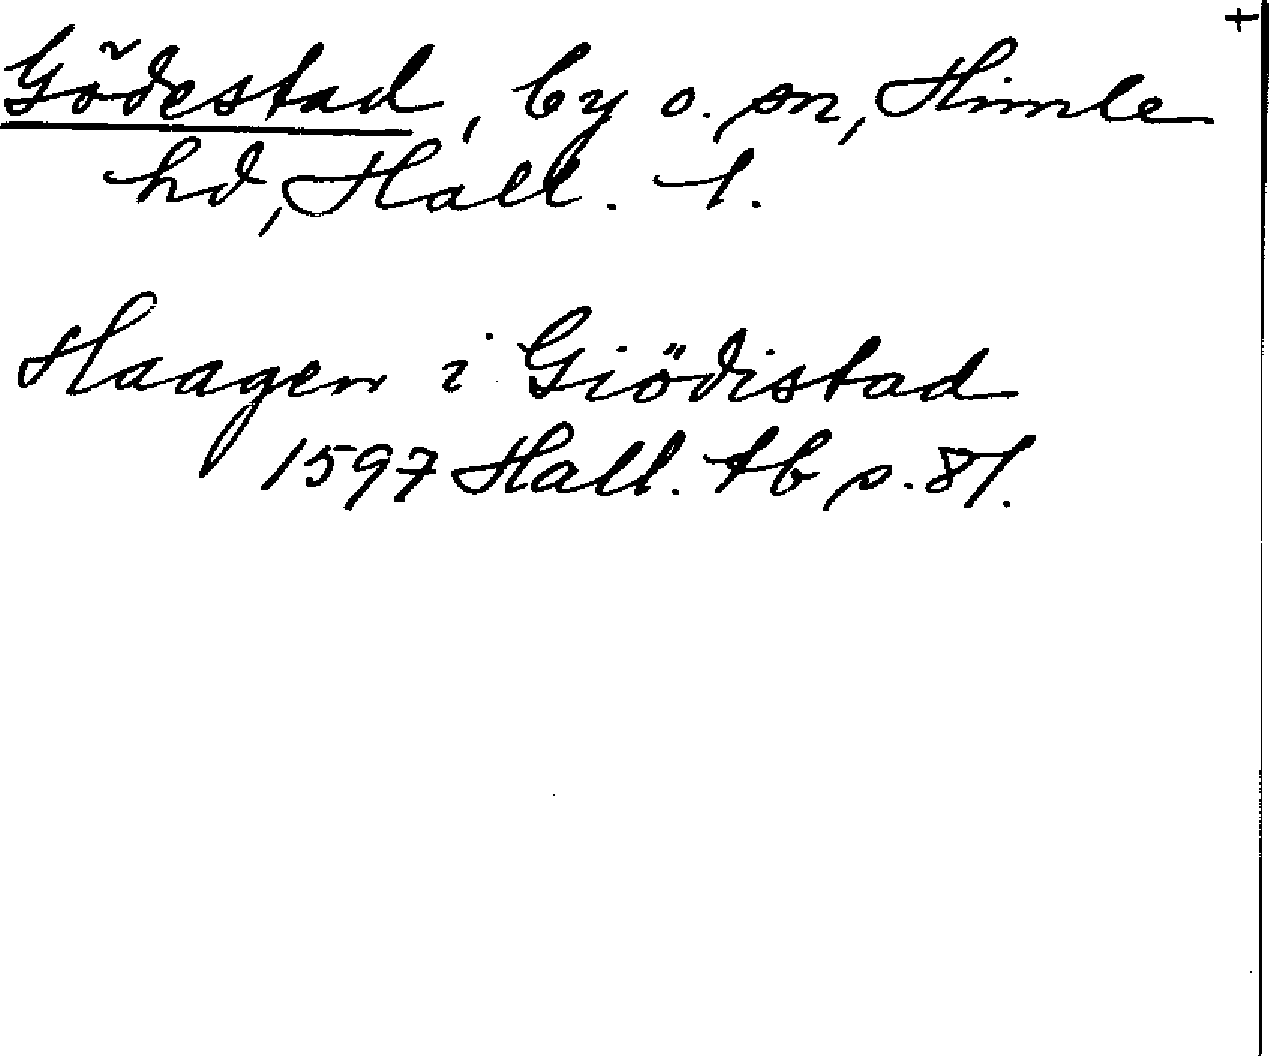 +
Gödestad, by o. sn, Himle
hd, Hall. l.
Haagen i Giödistad
1597 Hall. tb s. 81.